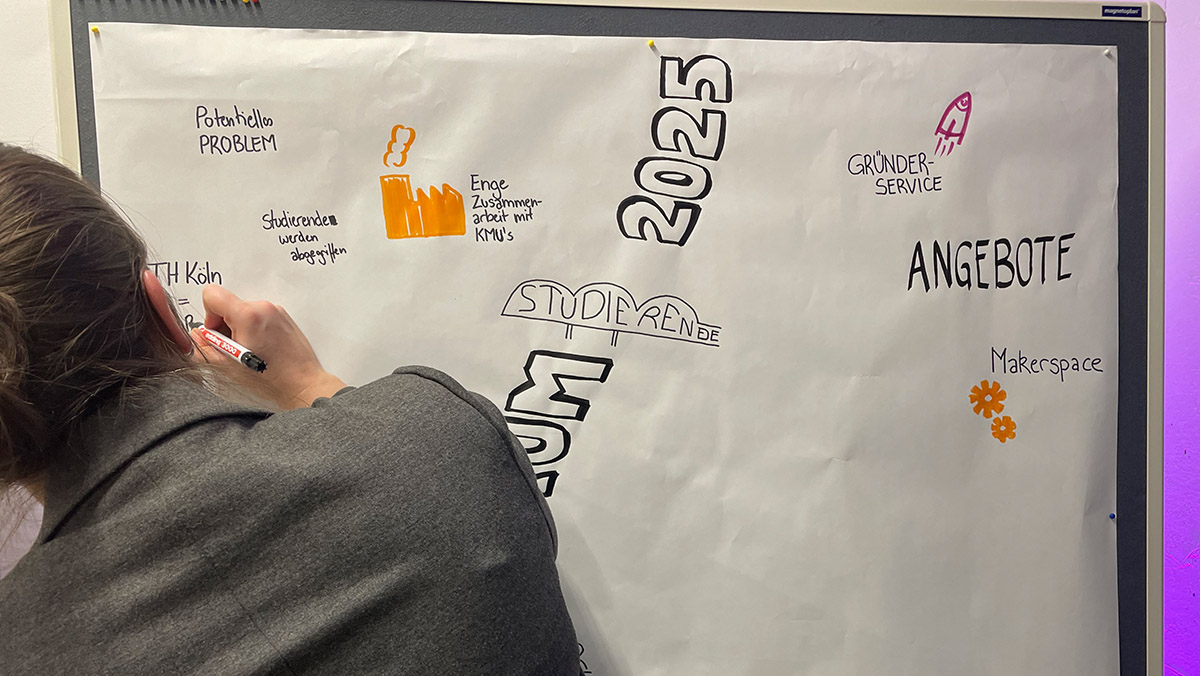 magnetoplan
Potentielles
PROBLEM
Enge
Zusammen-
arbeit mit
KMU's
Studierende
werden
abgegriffen
TH Köln
=
2025
STUDIERENDE
UM
GRÜNDER-
SERVICE
ANGEBOTE
Makerspace
edding 3000